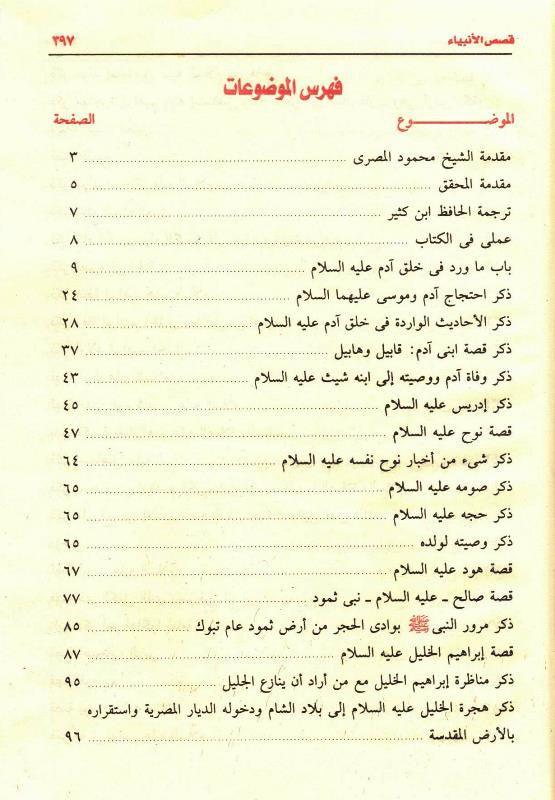 قصص الأنبياء ٣٩٧
فهرس الموضوعات
الموضـــــــــوع الصفحة
مقدمة الشيخ محمود المصرى ٣
مقدمة المحقق ٥
ترجمة الحافظ ابن كثير ٧
عملى فى الكتاب ٨
باب ما ورد فى خلق آدم عليه السلام ٩
ذكر احتجاج آدم وموسى عليهما السلام ٢٤
ذكر الأحاديث الواردة فى خلق آدم عليه السلام ٢٨
ذكر قصة ابنى آدم: قابيل وهابيل ٣٧
ذكر وفاة آدم ووصيته إلى ابنه شيث عليه السلام ٤٣
ذكر إدريس عليه السلام ٤٥
قصة نوح عليه السلام ٤٧
ذكر شىء من أخبار نوح نفسه عليه السلام ٦٤
ذكر صومه عليه السلام ٦٥
ذكر حجه عليه السلام ٦٥
ذكر وصيته لولده ٦٥
قصة هود عليه السلام ٦٧
قصة صالح ـ عليه السلام ـ نبى ثمود ٧٧
ذكر مرور النبى ﷺ بوادى الحجر من أرض ثمود عام تبوك ٨٥
قصة إبراهيم الخليل عليه السلام ٨٧
ذكر مناظرة إبراهيم الخليل مع من أراد أن ينازع الجليل ٩٥
ذكر هجرة الخليل عليه السلام إلى بلاد الشام ودخوله الديار المصرية واستقراره
بالأرض المقدسة ٩٦